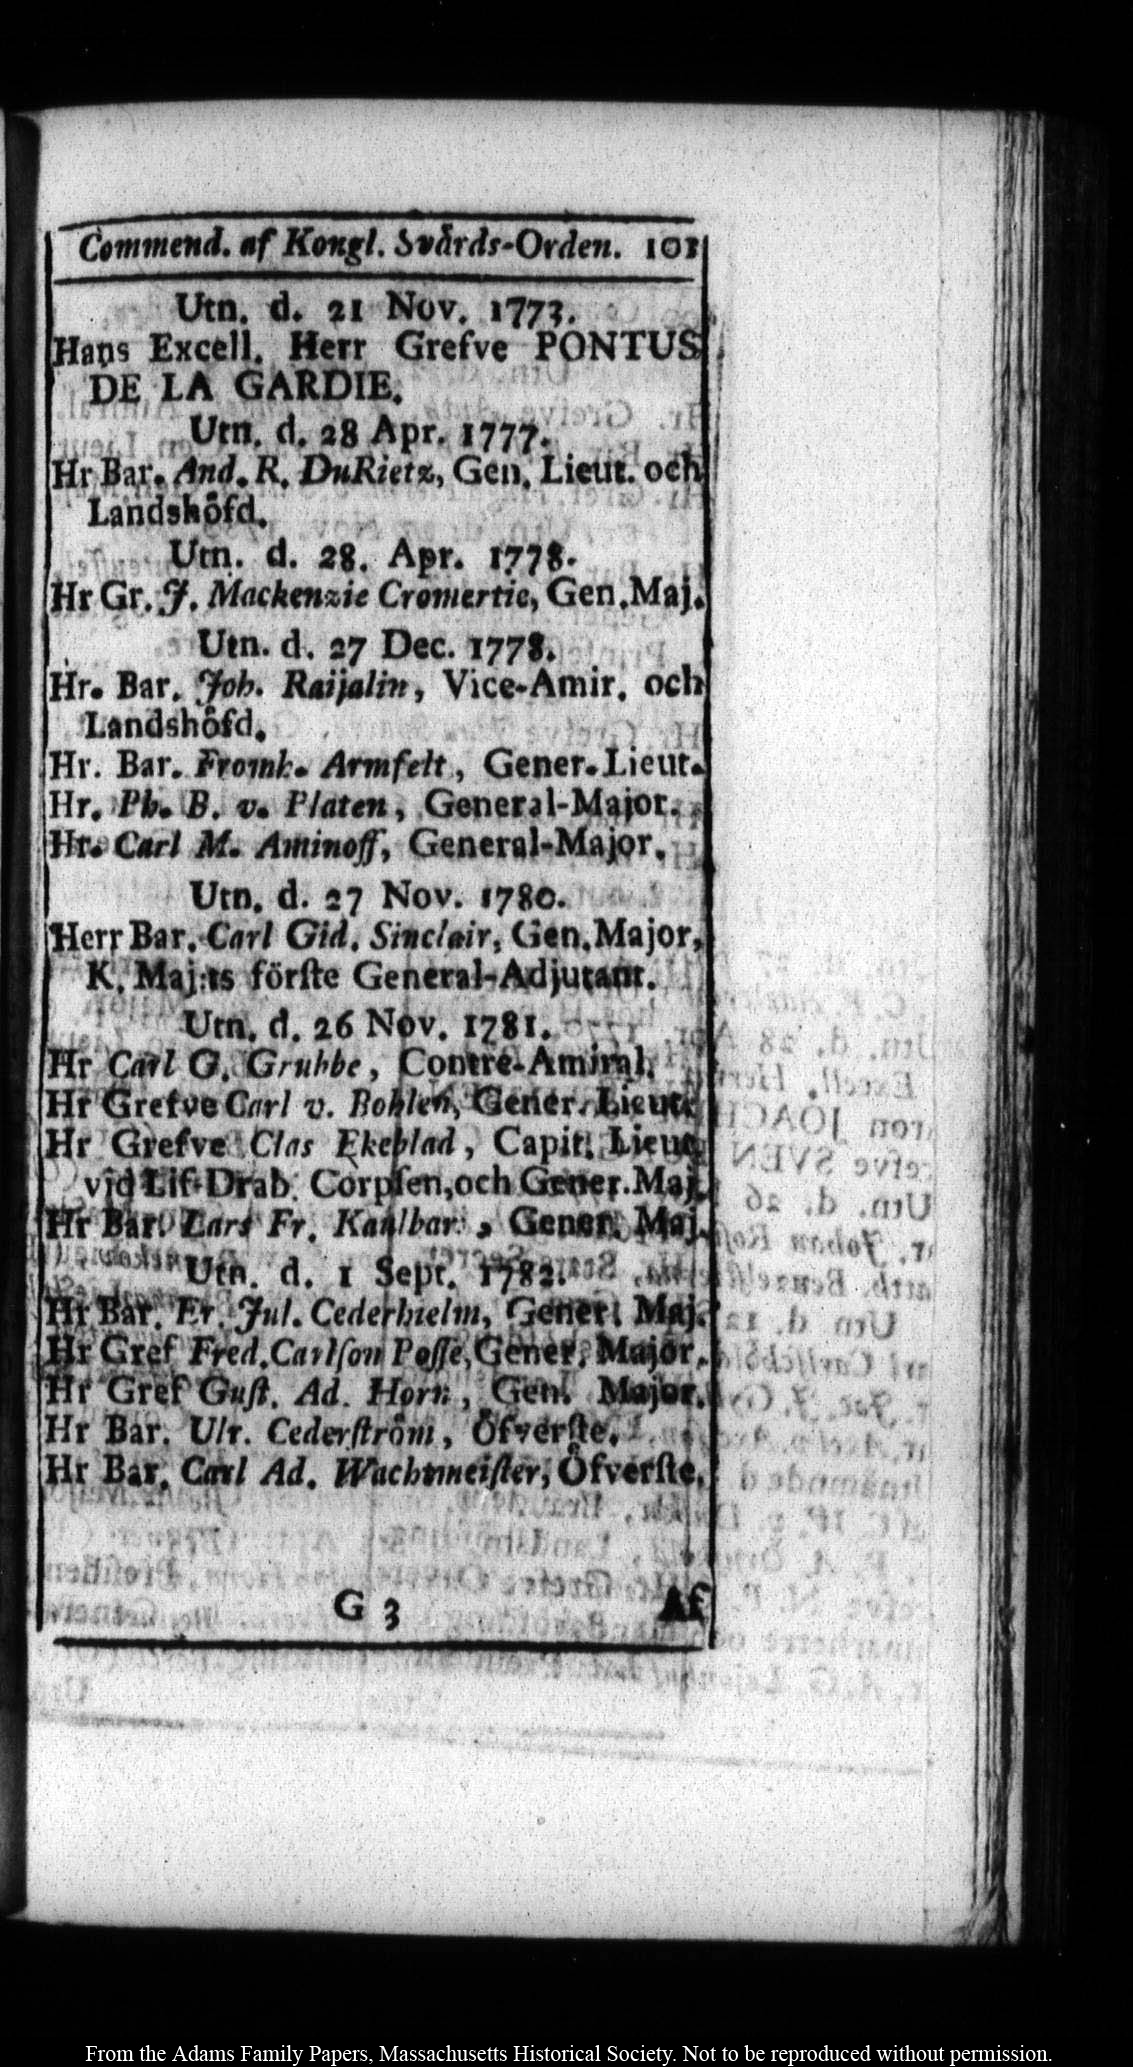 Commend. af Kongl. Svårds-Orden. 101
Utn. d. 21 Nov. 1773.
Hans Excell. Herr Grefve PONTUS
DE LA GARDIE.
Utn. d. 28 Apr. 1777.
Hr Bar. And. R. DuRietz, Gen. Lieut. och
Landshôfd.
Utn. d. 28. Apr. 1778.
Hr Gr. J. Mackenzie Cromertie, Gen. Maj.
Utn. d. 27 Dec. 1778.
Hr. Bar. Joh. Raijalin, Vice-Amir. och
Landshôfd.
Hr. Bar. Fromh. Armfelt, Gener. Lieut.
Hr. Ph. B. v. Platen, General-Major.
Hr. Carl M. Aminoff, General-Major.
Utn. d. 27 Nov. 1780.
Herr Bar. Carl Gid. Sinclair, Gen. Major,
K. Maj:ts förſte General-Adjutant.
Utn. d. 26 Nov. 1781.
Hr Carl G. Grubbe, Contre-Amiral.
Hr Grefve Carl v. Bohlen, Gener. Lieut.
Hr Grefve Clas Ekeblad, Capit. Lieut.
vid Lif-Drab. Corpſen, och Gener. Maj.
Hr Bar. Lars Fr. Kaulbars, Gener. Maj.
Utn. d. 1 Sept. 1782.
Hr Bar. Er. Jul. Cederhielm, Gener. Maj.
Hr Gref Fred. Carlſon Poſſe, Gener. Major.
Hr Gref Guſt. Ad. Horn, Gen. Major.
Hr Bar. Ulr. Cederſtrôm, Ôfverſte.
Hr Bar. Carl Ad. Wachtmeiſter, Ôfverſte.
G 3 Af
From the Adams Family Papers, Massachusetts Historical Society. Not to be reproduced without permission.